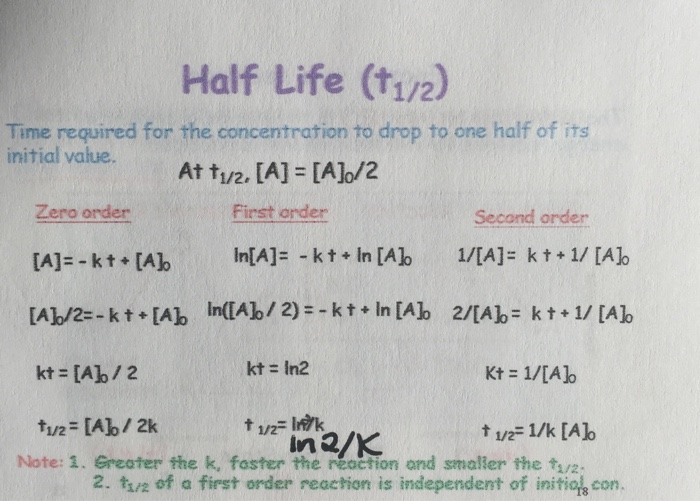 Half Life (t1/2)
Time required for the concentration to drop to one half of its
initial value.
At t1/2, [A] = [A]0/2
Zero order First order Second order
[A]= - k t + [A]0 ln[A]= - k t + ln [A]0 1/[A]= k t + 1/ [A]0
[A]0/2= - k t + [A]0 ln([A]0 / 2) = - k t + ln [A]0 2/[A]0= k t + 1/ [A]0
kt = [A]0 / 2 kt = ln2 Kt = 1/[A]0
t1/2 = [A]0 / 2k t 1/2= ln2/k t 1/2= 1/k [A]0
ln2/K
Note: 1. Greater the k, faster the reaction and smaller the t1/2.
2. t1/2 of a first order reaction is independent of initial con.
18